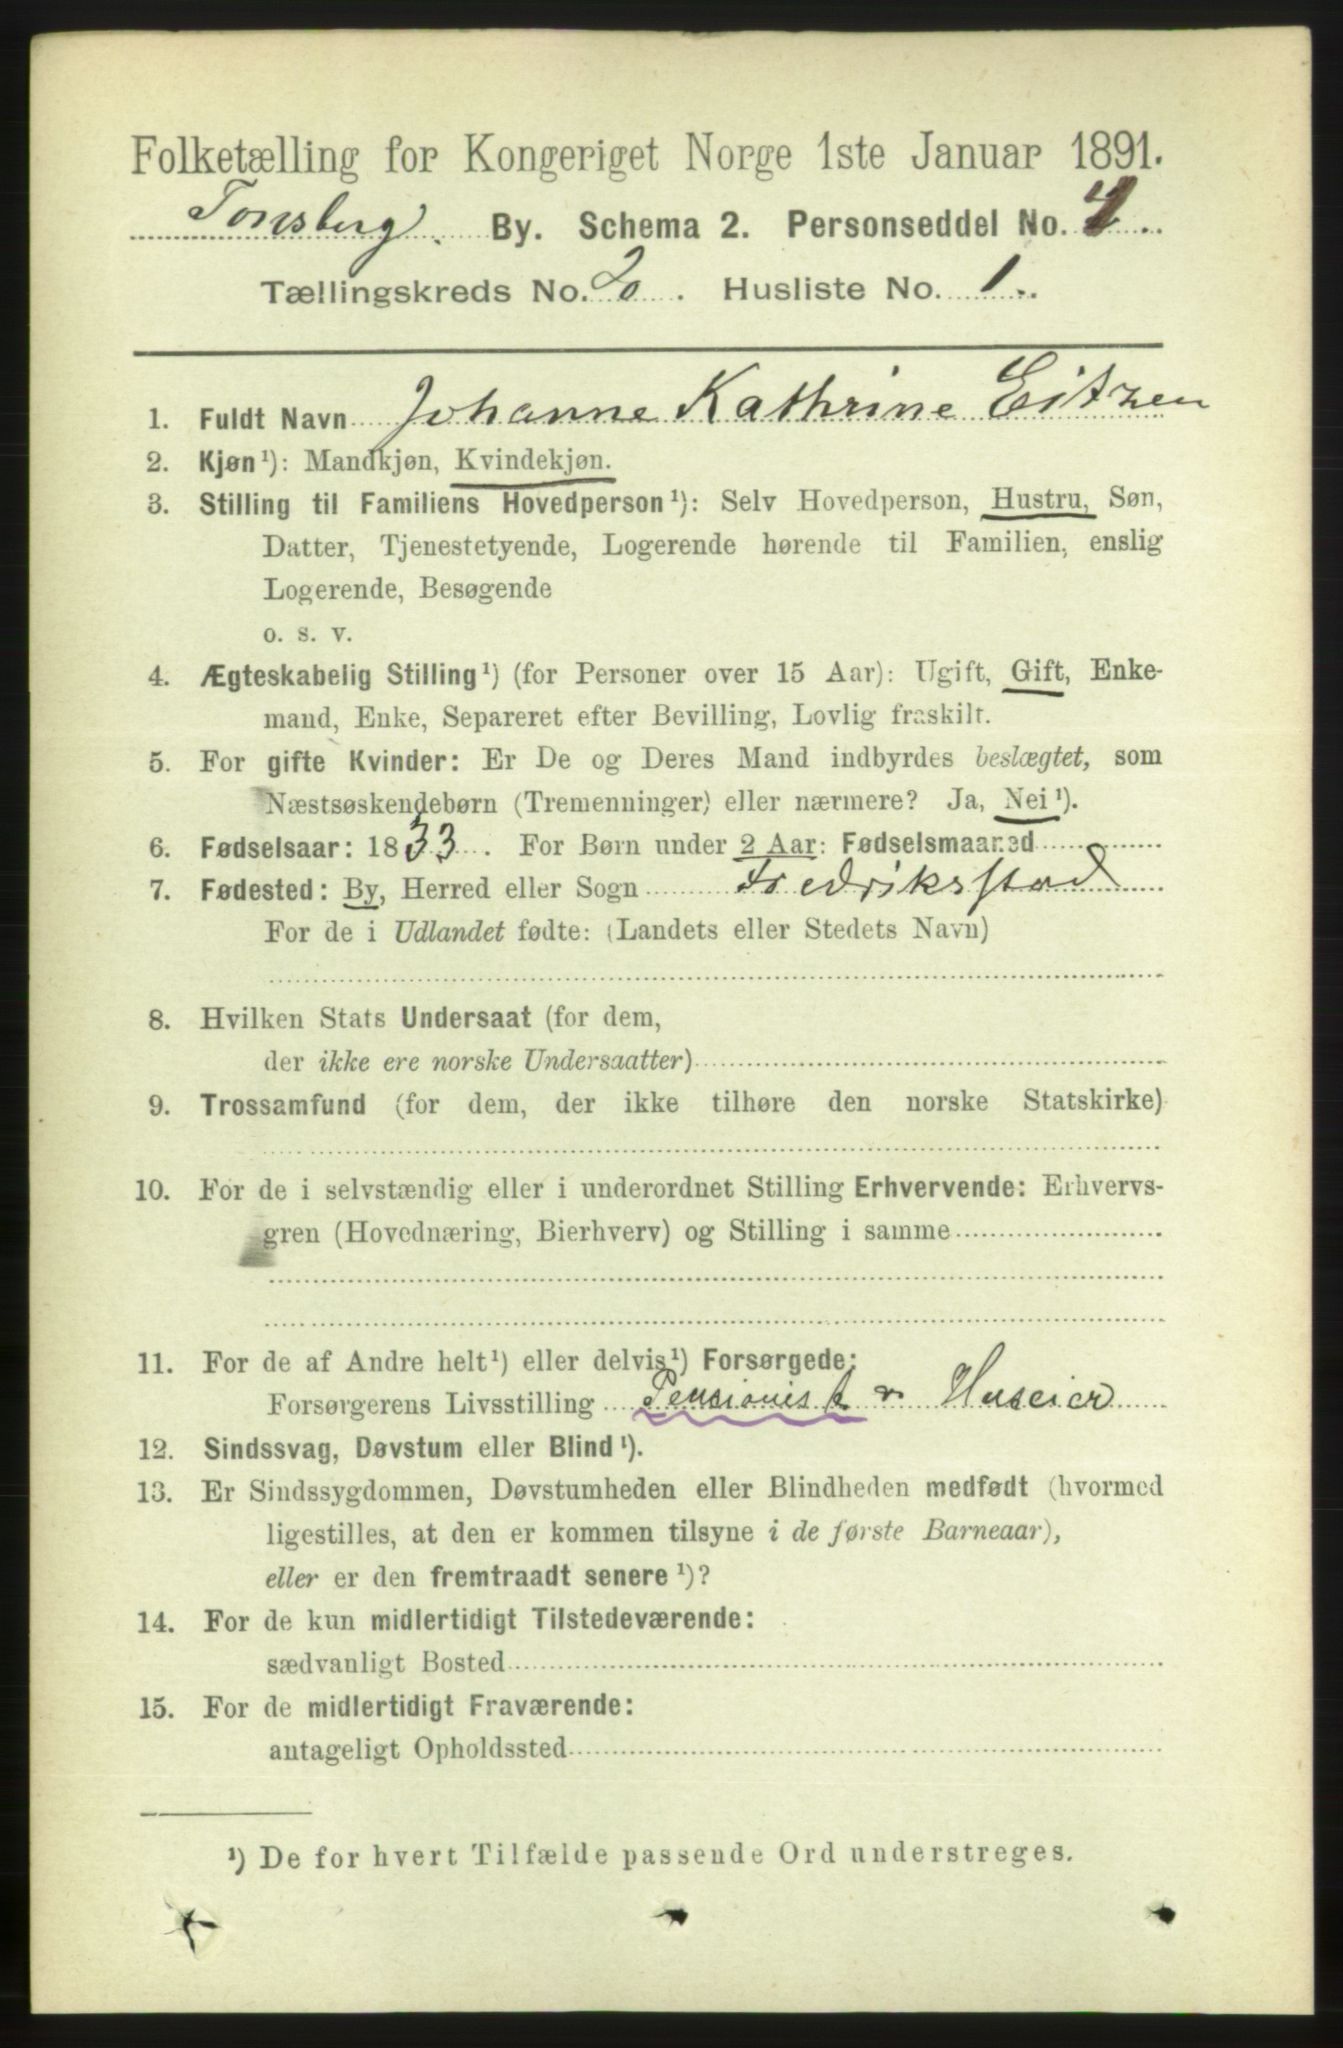 Folketælling for Kongeriget Norge 1ste Januar 1891.
Tønsberg. By. Schema 2. Personseddel No.
Tællingskreds No. 20. Husliste No. 1.
1. Fuldt Navn Johanne Kathrine Eitzen
2. Kjøn¹): Mandkjøn, Kvindekjøn.
3. Stilling til Familiens Hovedperson¹): Selv Hovedperson, Hustru, Søn,
Datter, Tjenestetyende, Logerende hørende til Familien, enslig
Logerende, Besøgende
o. s. v.
4. Ægteskabelig Stilling¹) (for Personer over 15 Aar): Ugift, Gift, Enke-
mand, Enke, Separeret efter Bevilling, Lovlig fraskilt.
5. For gifte Kvinder: Er De og Deres Mand indbyrdes beslægtet, som
Næstsøskendebørn (Tremenninger) eller nærmere? Ja, Nei¹).
6. Fødselsaar: 1833. For Børn under 2 Aar: Fødselsmaaned
7. Fødested: By, Herred eller Sogn Fredriksstad
For de i Udlandet fødte: (Landets eller Stedets Navn)
8. Hvilken Stats Undersaat (for dem,
der ikke ere norske Undersaatter)
9. Trossamfund (for dem, der ikke tilhøre den norske Statskirke)
10. For de i selvstændig eller i underordnet Stilling Erhvervende: Erhvervs-
gren (Hovednæring, Bierhverv) og Stilling i samme
11. For de af Andre helt¹) eller delvis¹) Forsørgede:
Forsørgerens Livsstilling Pensionist Huseier
12. Sindssvag, Døvstum eller Blind¹).
13. Er Sindssygdommen, Døvstumheden eller Blindheden medfødt (hvormed
ligestilles, at den er kommen tilsyne i de første Barneaar),
eller er den fremtraadt senere¹)?
14. For de kun midlertidigt Tilstedeværende:
sædvanligt Bosted
15. For de midlertidigt Fraværende:
antageligt Opholdssted
¹) De for hvert Tilfælde passende Ord understreges.